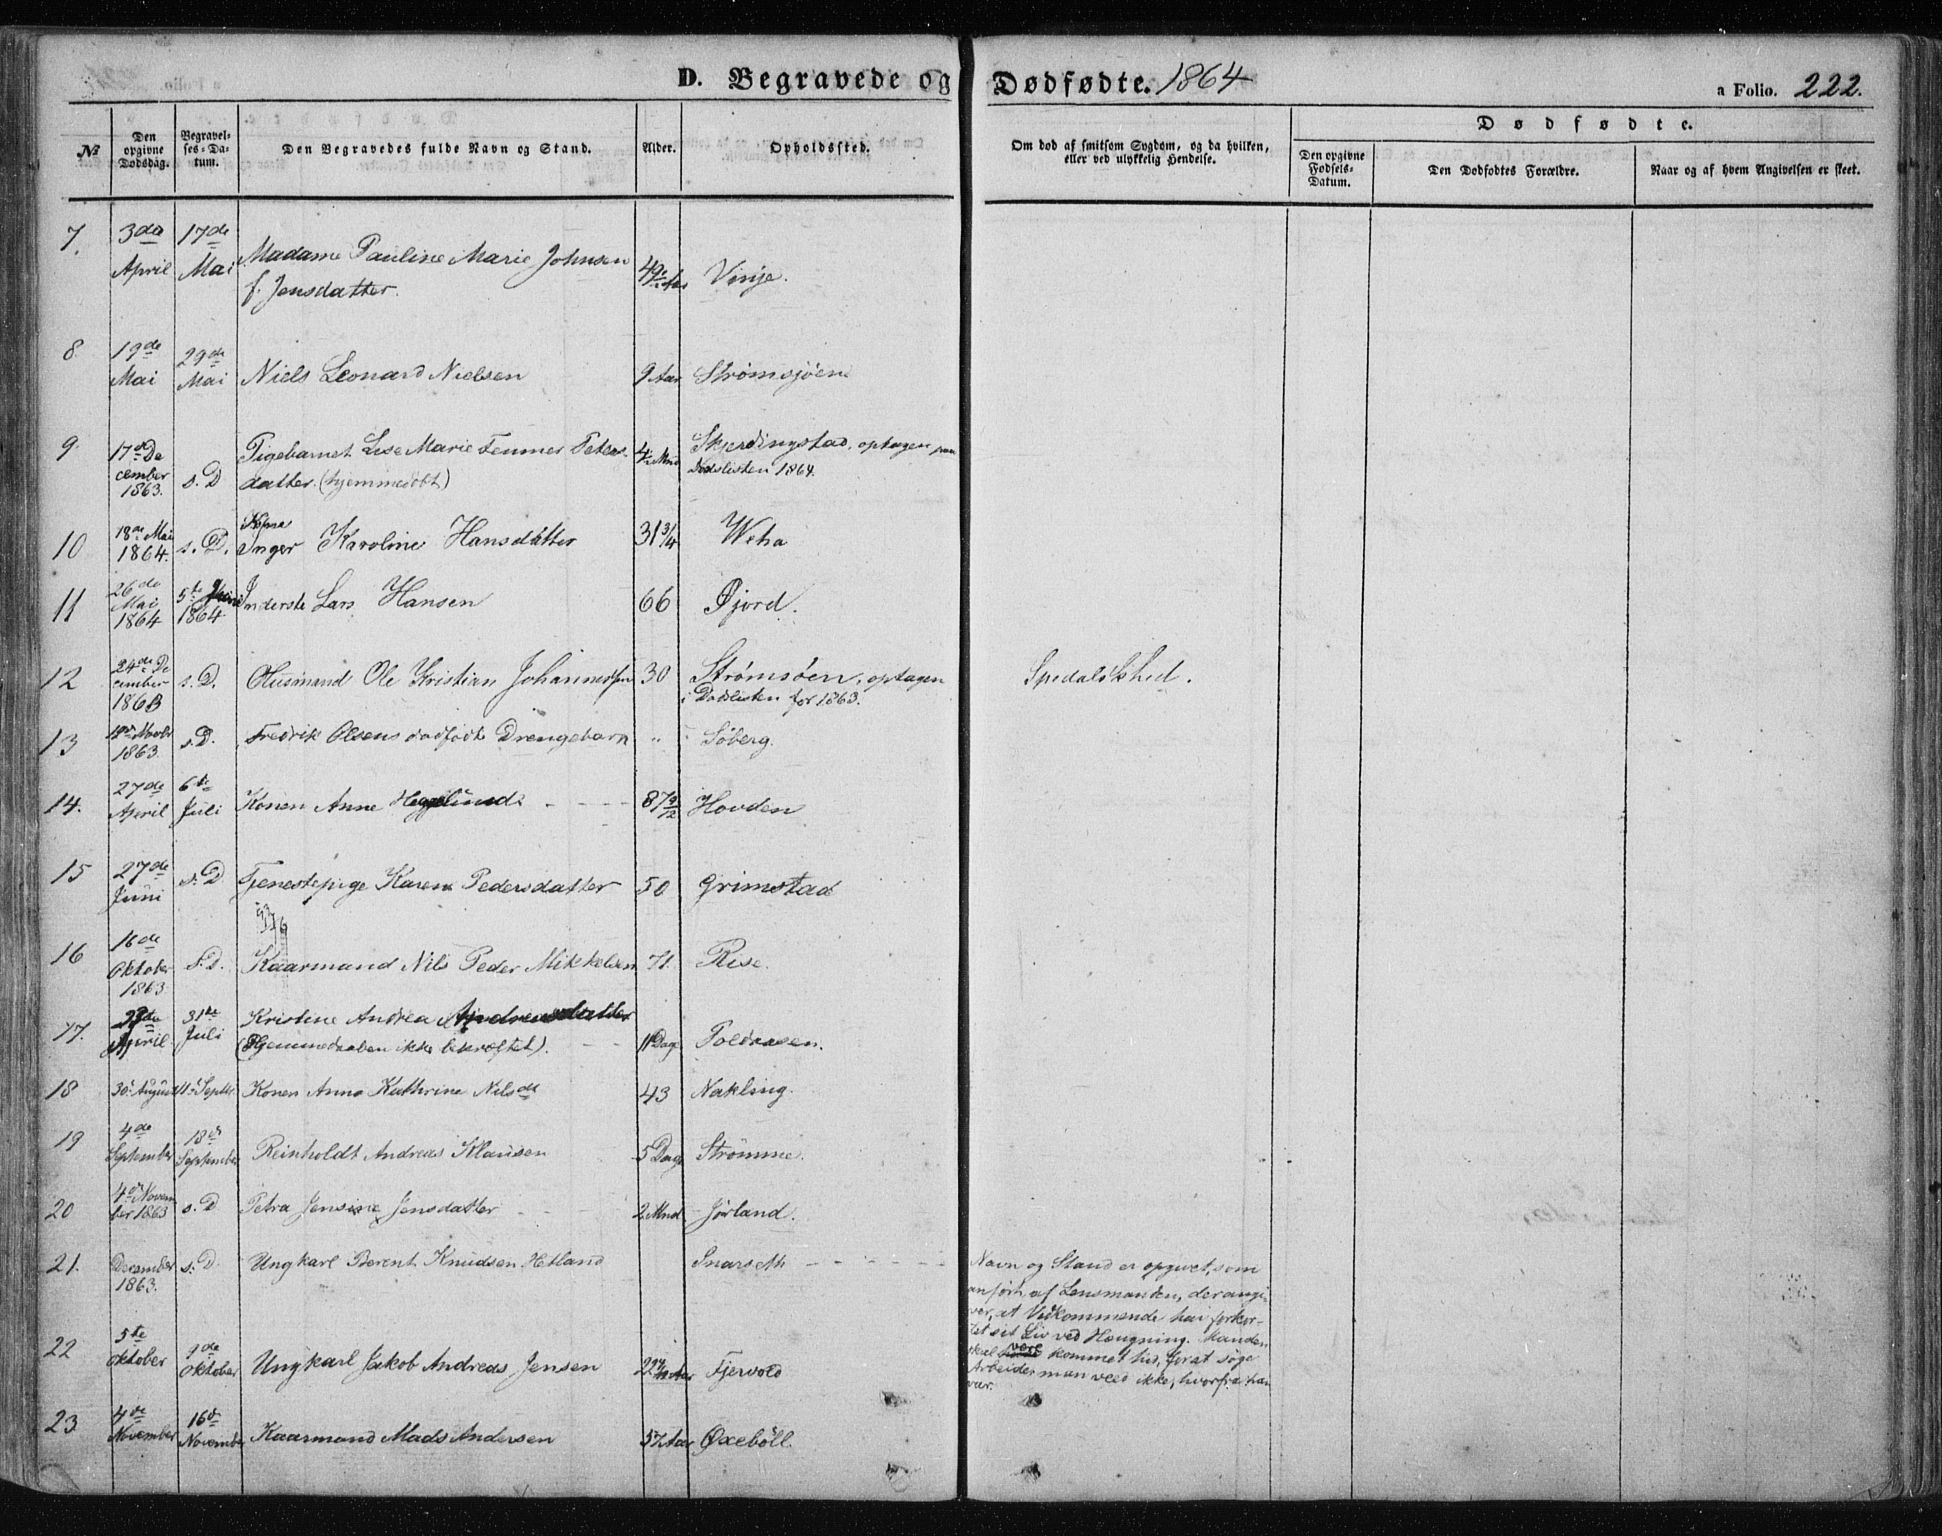 D. Begravede og Dødfødte. 1864
a Folio. 222.
No
Den opgivne Dødsdag.
Begravelses-Datum.
Den Begravedes fulde Navn og Stand.
Alder.
Opholdssted.
Om død af smitsom Sygdom, og da hvilken, eller ved ulykkelig Hendelse.
Dødfødte.
Den opgivne Fødsels-Datum.
Den Dødfødtes Forældre.
Naar og af hvem Angivelsen er skeet.
7. 3die April 17de Mai Madame Pauline Marie Johnsen
f. Jensdatter. 49 Aar
8. 19de Mai 29de Mai Niels Leonard Nielsen 9 Aar Strømsjøen
9. 17de December 1863. s. D Pigebarnet Lise Marie Petersdatter. (hjemmedøbt) 4 Mnd Skjerdingstad, optagen paa
Dødslisten 1864.
10 18de Mai 1864. s. D. Kone Inger Karoline Hansdatter 31 3/4 Weha
11 26de Mai 1864 5te Juni 1864 Inderste Lars Hansen 66
12 24de December 1863 s. D. Husmand Ole Kristian Johannessen 30 Strømsøen, optagen
i Dødslisten for 1863. Spedalskhed.
13 1863. s. D. Fredrik Olsens dødfødte Drengebarn " Søberg.
14. 27de April 6te Juli Konen Anne Heggelund 87 Hovden
15 27de Juni s. D Tjenestepige Karen Pedersdatter 50 Grimstad
16 16de Oktober 1863 s. D. Kaarmand Nils Peder Mikkelsen 71. Rise.
17. April 31te Juli Kristine Andrea Andreasdatter
(Hjemmedaaben ikke bekræftet). 11 Dage
18 30. August 11. Septbr. Konen Anna Kathrine Nilsdt 43 Nakling.
19 4de September 18de September Reinholdt Andreas Klausen 5 Dage Strømme.
20 4de November 1863 s. D Petra Jensine Jensdatter 2 Mnd Jørland.
21. December 1863. s. D. Ungkarl Berent Knudsen Hetland Snarseth
Navn og Stand er opgivet, som
anført, af Lensmanden, der angi-
ver, at Vedkommende har forkor-
tet sit Liv ved Hængning. Manden
skal være kommet hid, for at søge
Arbeide, man veed ikke, hvorfra han
var.
22 5te Oktober 9de Oktober Ungkarl Jakob Andreas Jensen Fjervold
23 4de November 16de November Kaarmand Mads Andersen 57 Aar Øxebøll.